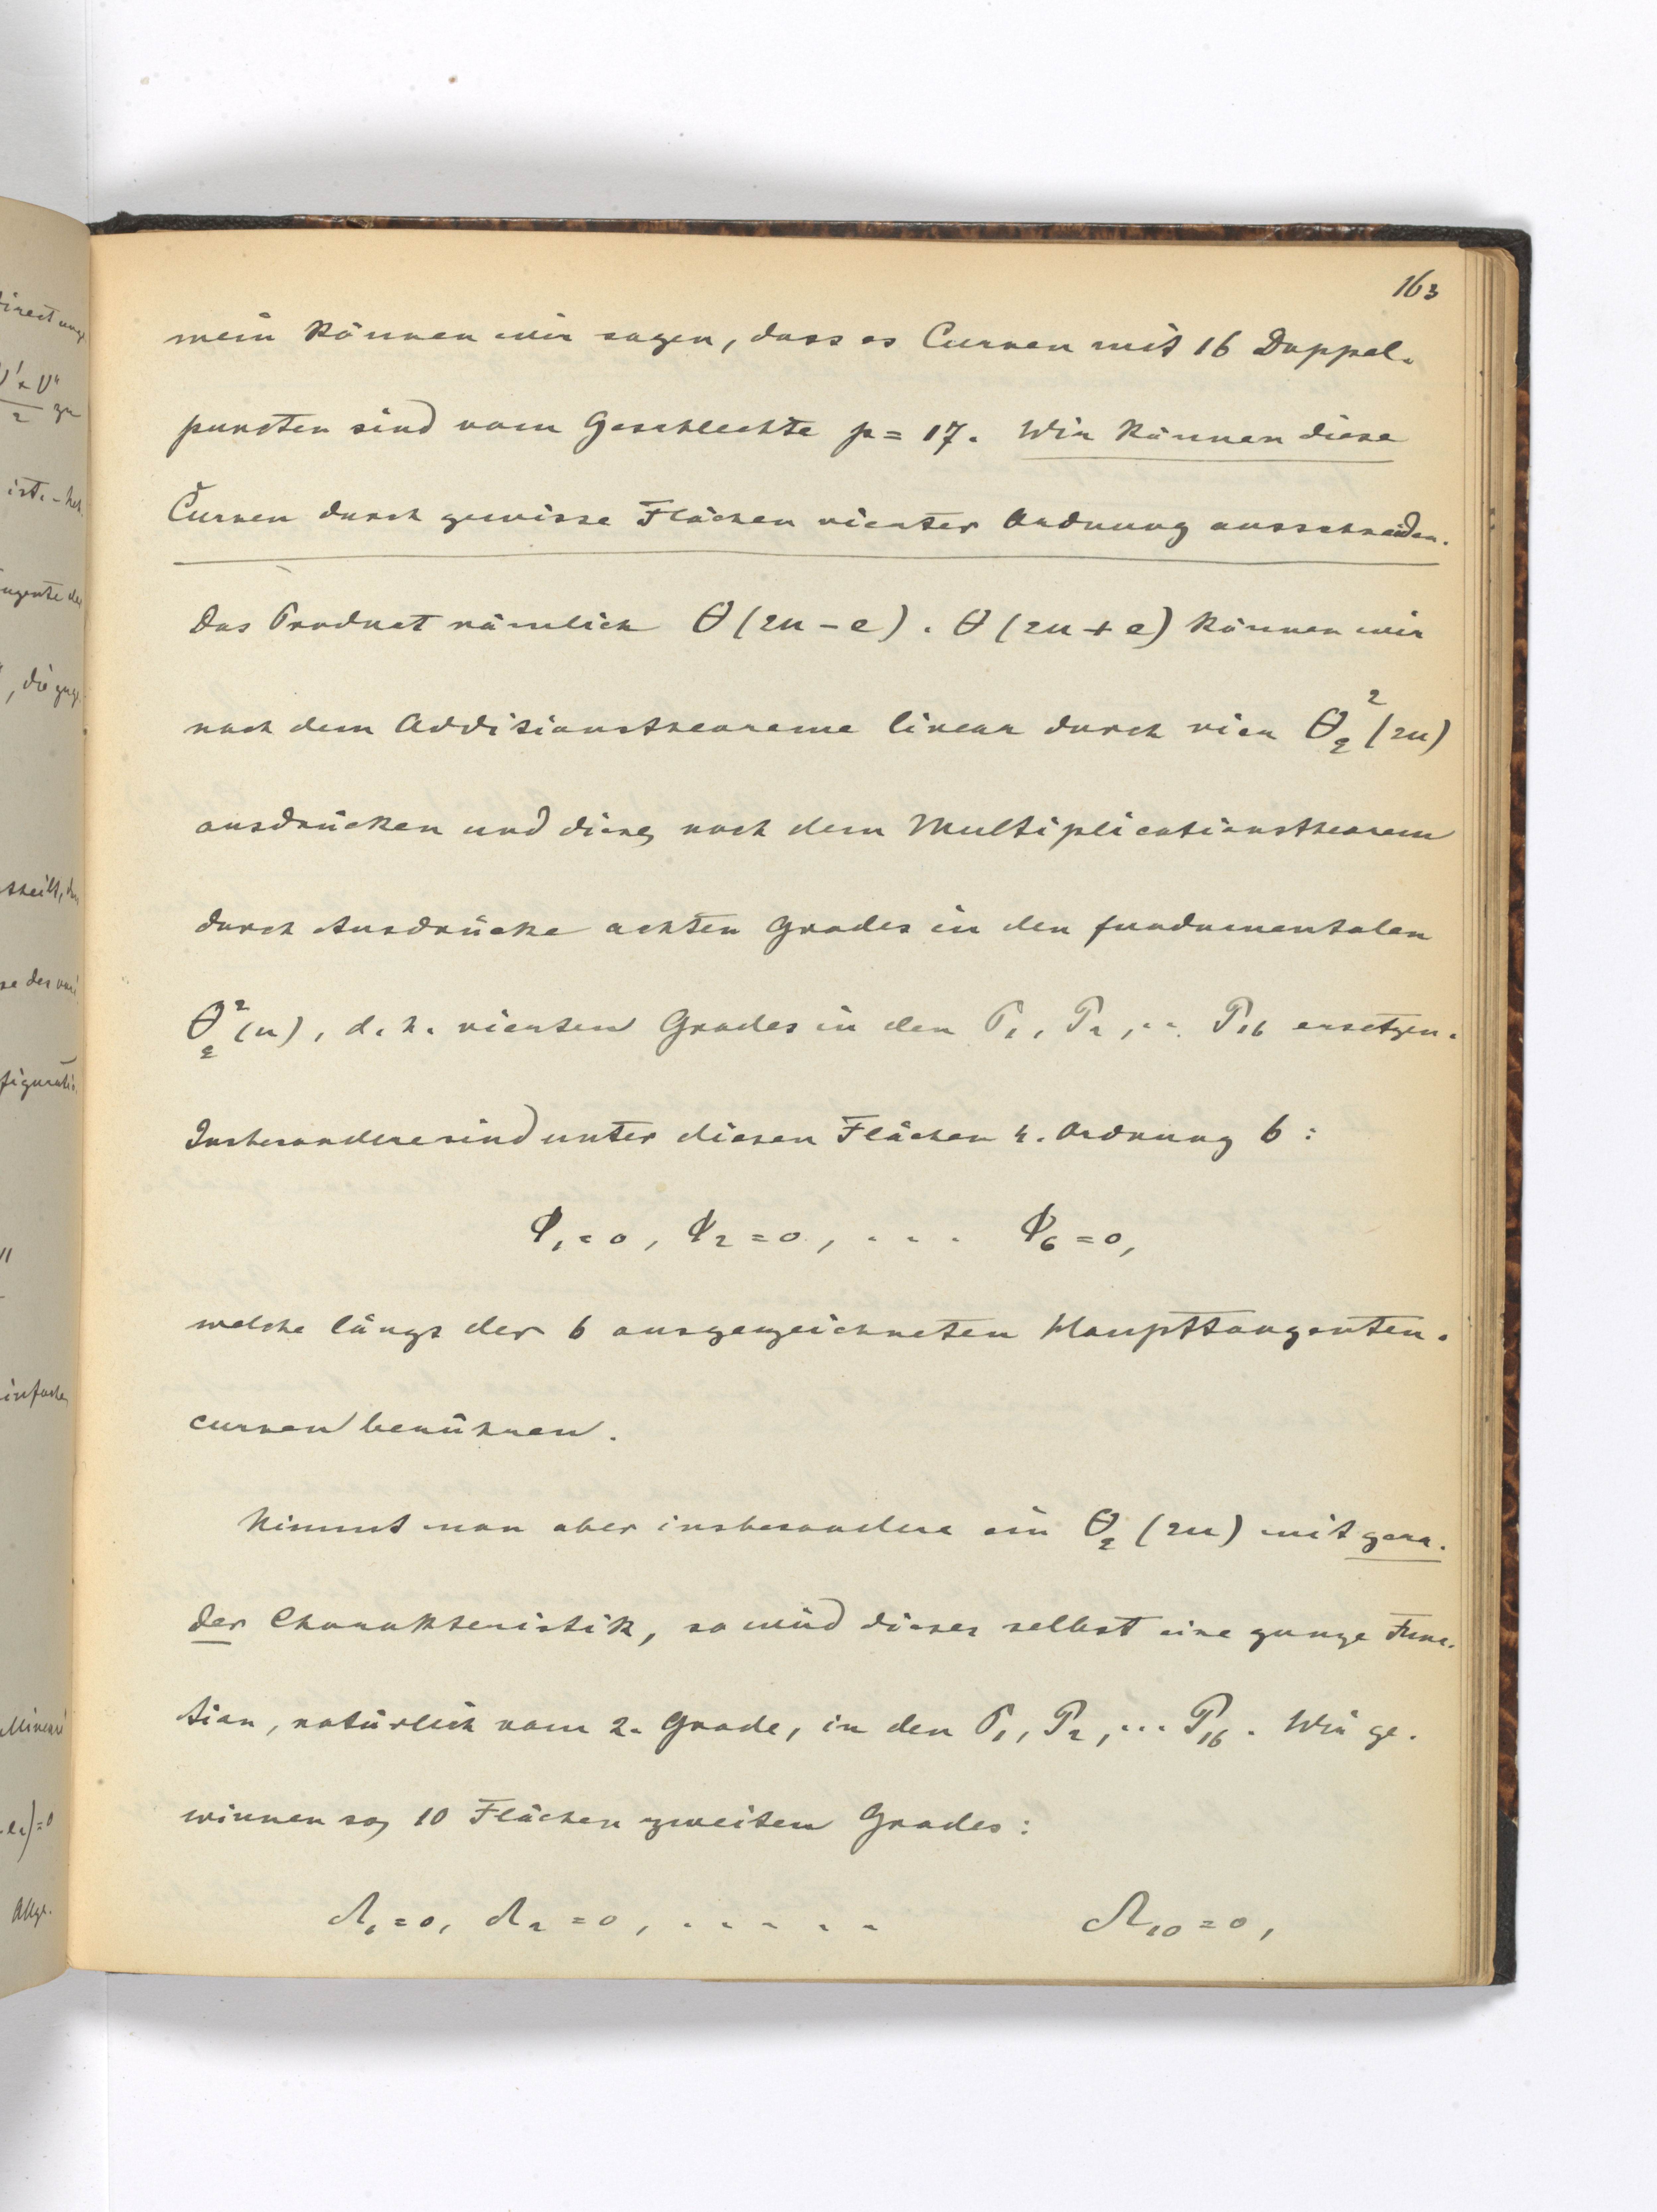 163
mein können wir sagen, dass es Curven mit 16 Doppel-
puncten sind vom Geschlechte p = 17. Wir können diese
Curven durch gewisse Flächen vierter Ordnung ausschneiden.
Das Product nämlich θ(2u-e). θ(2u+e) können wir
nach dem Additionstheoreme linear durch vier θ₂²(2u)
ausdrücken und diese, nach dem Multiplicationstheorem
durch Ausdrücke achten Grades in den fundamentalen
θ₂²(u), d. h. vierten Grades in den P₁, P₂, ... P₁₆ ersetzen.
Insbesondere sind unter diesen Flächen 4. Ordnung 6:
Φ₁=0, Φ₂=0, . . . Φ₆=0,
welche längs der 6 ausgezeichneten Haupttangenten-
curven berühren.
Nimmt man aber insbesondere ein θ₂(2u) mit gera-
der Charakteristik, so wird dieses selbst eine ganze Func-
tion, natürlich vom 2. Grade, in den P₁, P₂, ... P₁₆. Wir ge-
winnen so, 10 Flächen zweiten Grades:
Ω₁=0, Ω₂=0, . . . . . Ω₁₀=0,